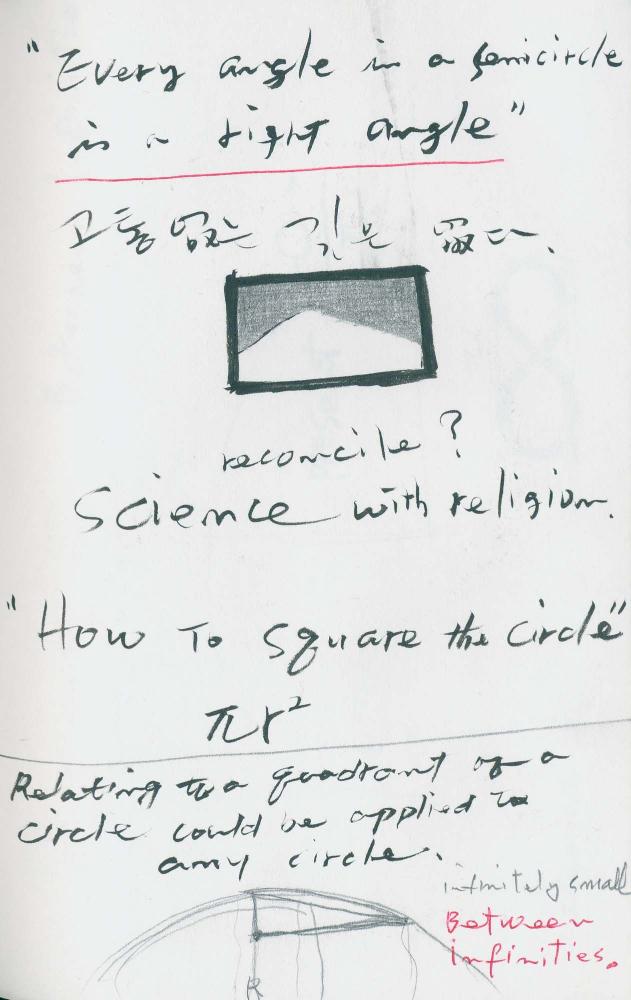 "Every angle in a semicircle
is a right angle"
고통 없는 깊은 없다.
reconcile?
Science with religion.
"How To square the circle"
πr²
Relating to a quadrant of a
circle could be applied to
any circle.
infinitely small
Between
infinities.
R